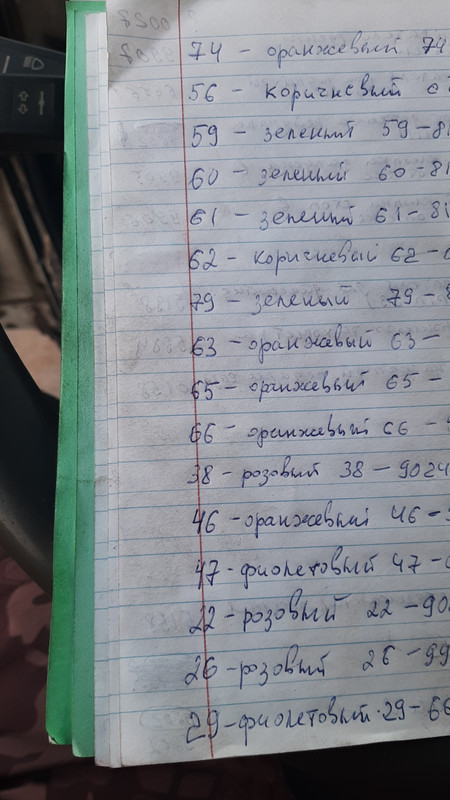 74 - оранжевый 74
56 - коричневый
59 - зеленый 59-81
60 - зеленый 60-81
61 - зеленый 61-81
62 - коричневый 62-
79 - зеленый 79-8
63 - оранжевый 63-
65 - оранжевый 65-
66 - оранжевый 66-
38 - розовый 38-9024
46 - оранжевый 46-
47 - фиолетовый 47-
22 - розовый 22-90
26 - розовый 26-99
29 - фиолетовый 29-66